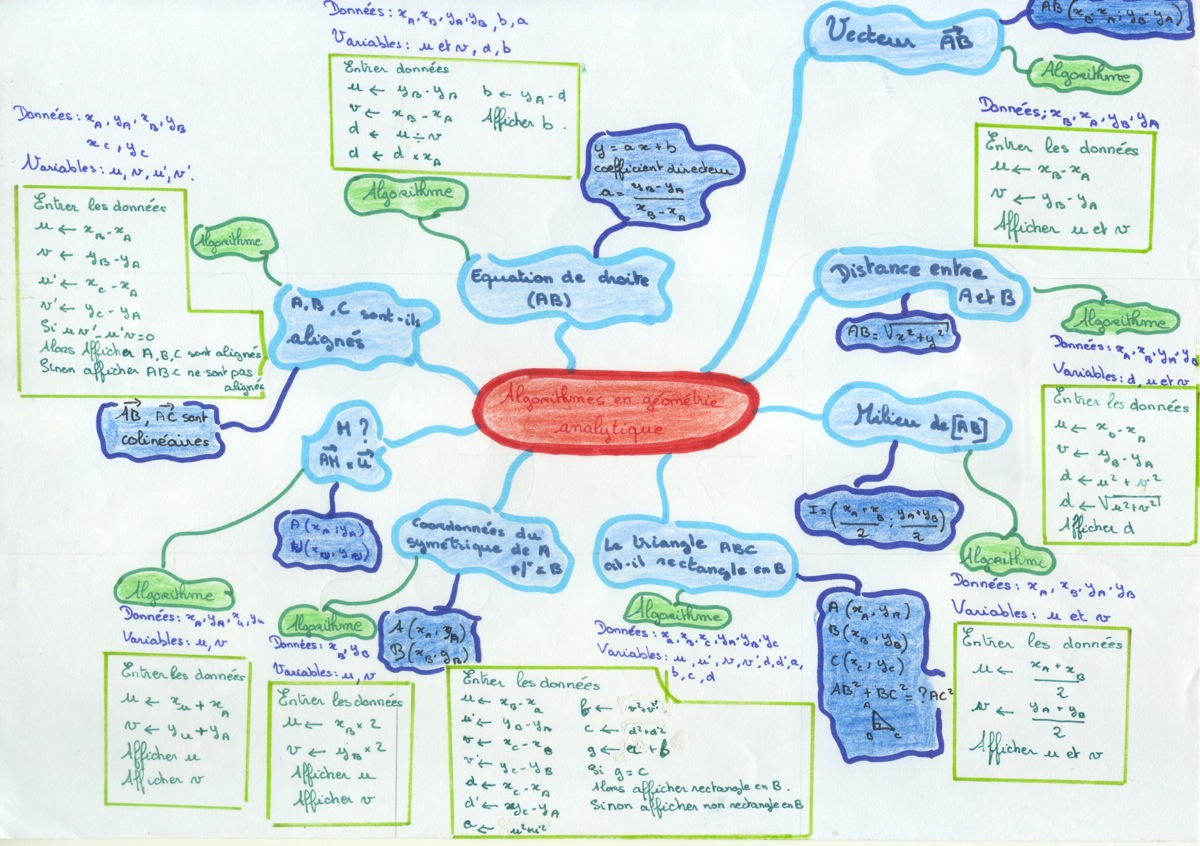 Algorithmes en géométrie
analytique
Vecteur AB
AB (xB-xA ; yB-yA)
Algorithme
Données : xB, xA, yB, yA
Entrer les données
u ← xB-xA
v ← yB-yA
Afficher u et v
Distance entre
A et B
AB = √x²+y²
Algorithme
Données : xA, xB, yA, yB
Variables : d, u et v
Entrer les données
u ← xB-xA
v ← yB-yA
d ← u² + v²
d ← √u²+v²
Afficher d
Milieu de [AB]
I = (xA+xB/2 ; yA+yB/2)
Algorithme
Données : xA, xB, yA, yB
Variables : u et v
Entrer les données
u ← xA+xB/2
v ← yA+yB/2
Afficher u et v
Le triangle ABC
est-il rectangle en B
A (xA, yA)
B (xB, yB)
C (xC, yC)
AB² + BC² = ? AC²
A
B C
Algorithme
Données : xA, xB, xC, yA, yB, yC
Variables : u, u', v, v', d, d', a,
b, c, d
Entrer les données
u ← xB-xA
u' ← yB-yA
v ← xC-xB
v' ← yC-yB
d ← xC-xA
d' ← yC-yA
a ← u²+u'²
b ← v²+v'²
c ← d²+d'²
g ← a + b
Si g = c
Alors afficher rectangle en B.
Sinon afficher non rectangle en B
Coordonnées du
symétrique de A
p/r à B
A (xA, yA)
B (xB, yB)
Algorithme
Données : xB, yB
Variables : u, v
Entrer les données
u ← xB × 2
v ← yB × 2
Afficher u
Afficher v
M ?
AM = u
A (xA ; yA)
Algorithme
Données : xA, yA, xu, yu
Variables : u, v
Entrer les données
u ← xu + xA
v ← yu + yA
Afficher u
Afficher v
A, B, C sont-ils
alignés
AB, AC sont
colinéaires
Algorithme
Données : xA, yA, xB, yB
xC, yC
Variables : u, v, u', v'.
Entrer les données
u ← xB-xA
v ← yB-yA
u' ← xC-xA
v' ← yC-yA
Si uv'-u'v=0
Alors Afficher A,B,C sont alignés
Sinon afficher ABC ne sont pas
alignés
Equation de droite
(AB)
y = ax+b
coefficient directeur
a = yB-yA/xB-xA
Algorithme
Données : xA, xB, yA, yB, b, a
Variables : u et v, d, b
Entrer données
u ← yB-yA
v ← xB-xA
d ← u÷v
d ← d×xA
b ← yA-d
Afficher b.